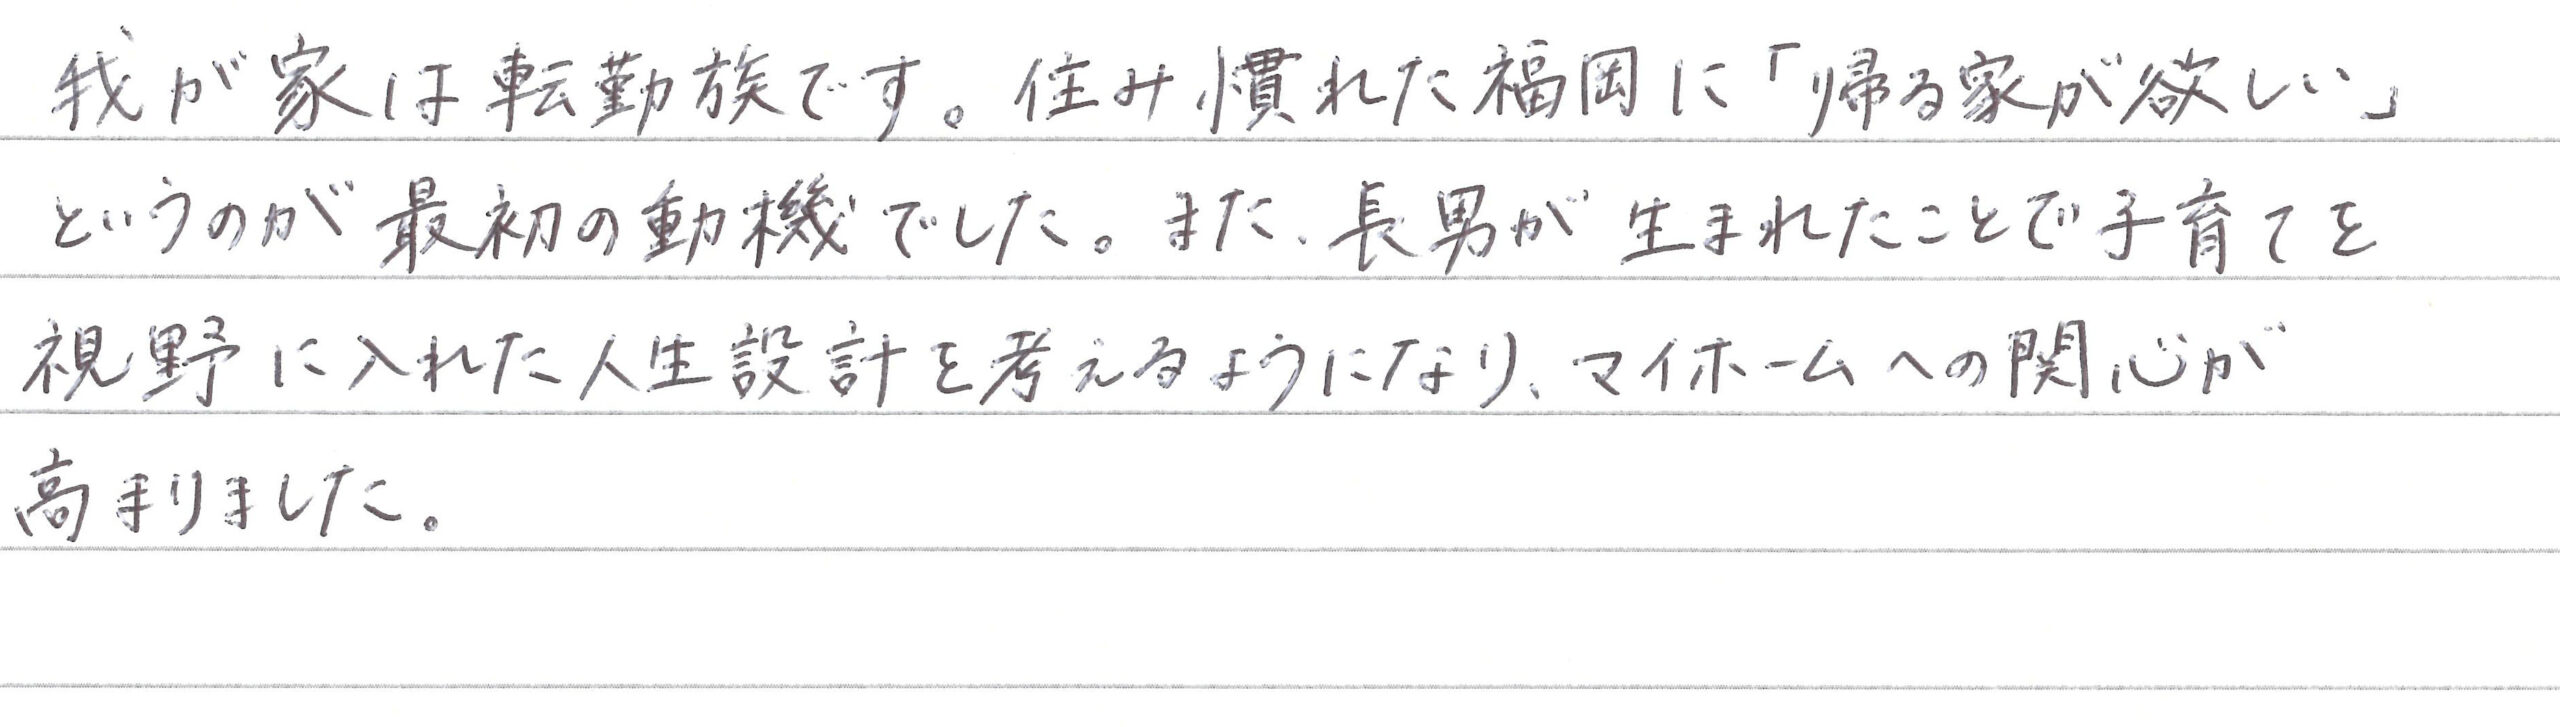 我が家は転勤族です。住み慣れた福岡に「帰る家が欲しい」
というのが最初の動機でした。また、長男が生まれたことで子育てを
視野に入れた人生設計を考えるようになり、マイホームへの関心が
高まりました。